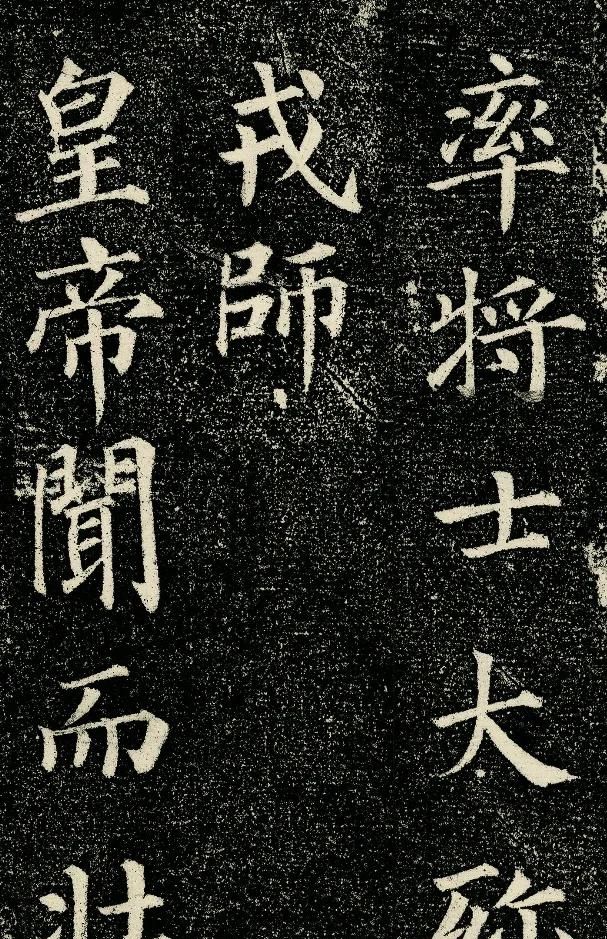 率将士大殄
戎師
皇帝聞而壯